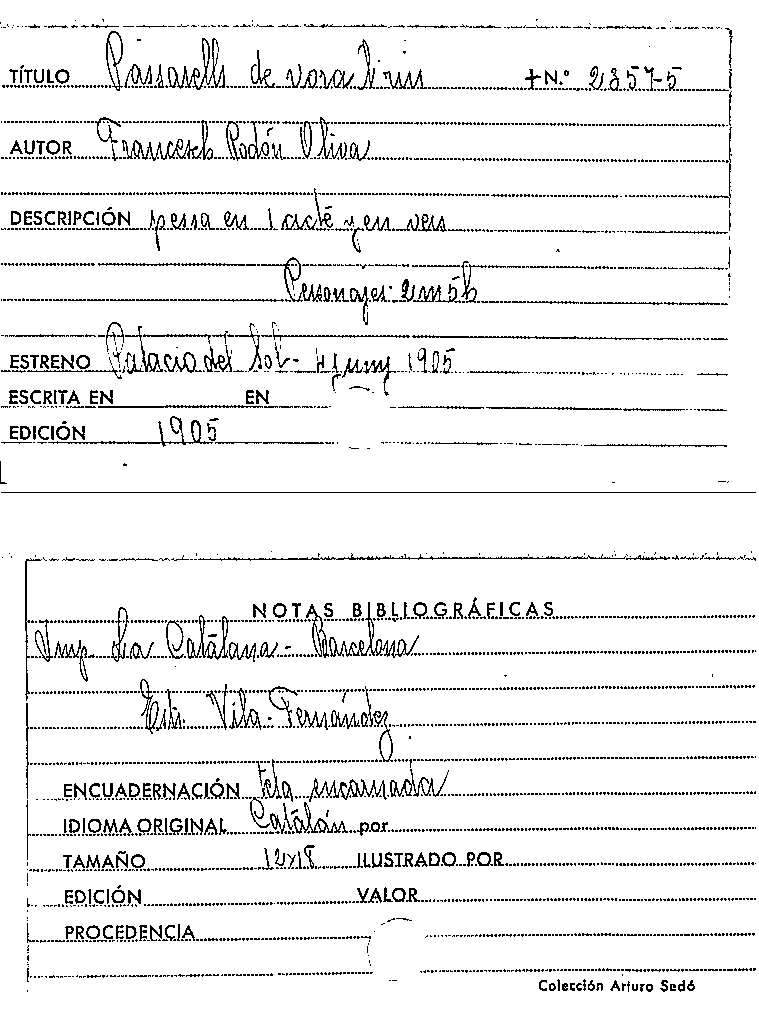 TÍTULO Passarells de vora'l riu + N.º 2357-5
AUTOR Francesch Rodón Oliva
DESCRIPCIÓN pessa en 1 acte y en vers
Personajes: 2m 5h
ESTRENO Palacio del Sol - 4 juny 1905
ESCRITA EN EN
EDICIÓN 1905
NOTAS BIBLIOGRÁFICAS
Imp La Catalana - Barcelona
Vila-Fernández
ENCUADERNACIÓN tela encarnada
IDIOMA ORIGINAL Catalán por
TAMAÑO 12x18 ILUSTRADO POR
EDICIÓN VALOR
PROCEDENCIA
Colección Arturo Sedó